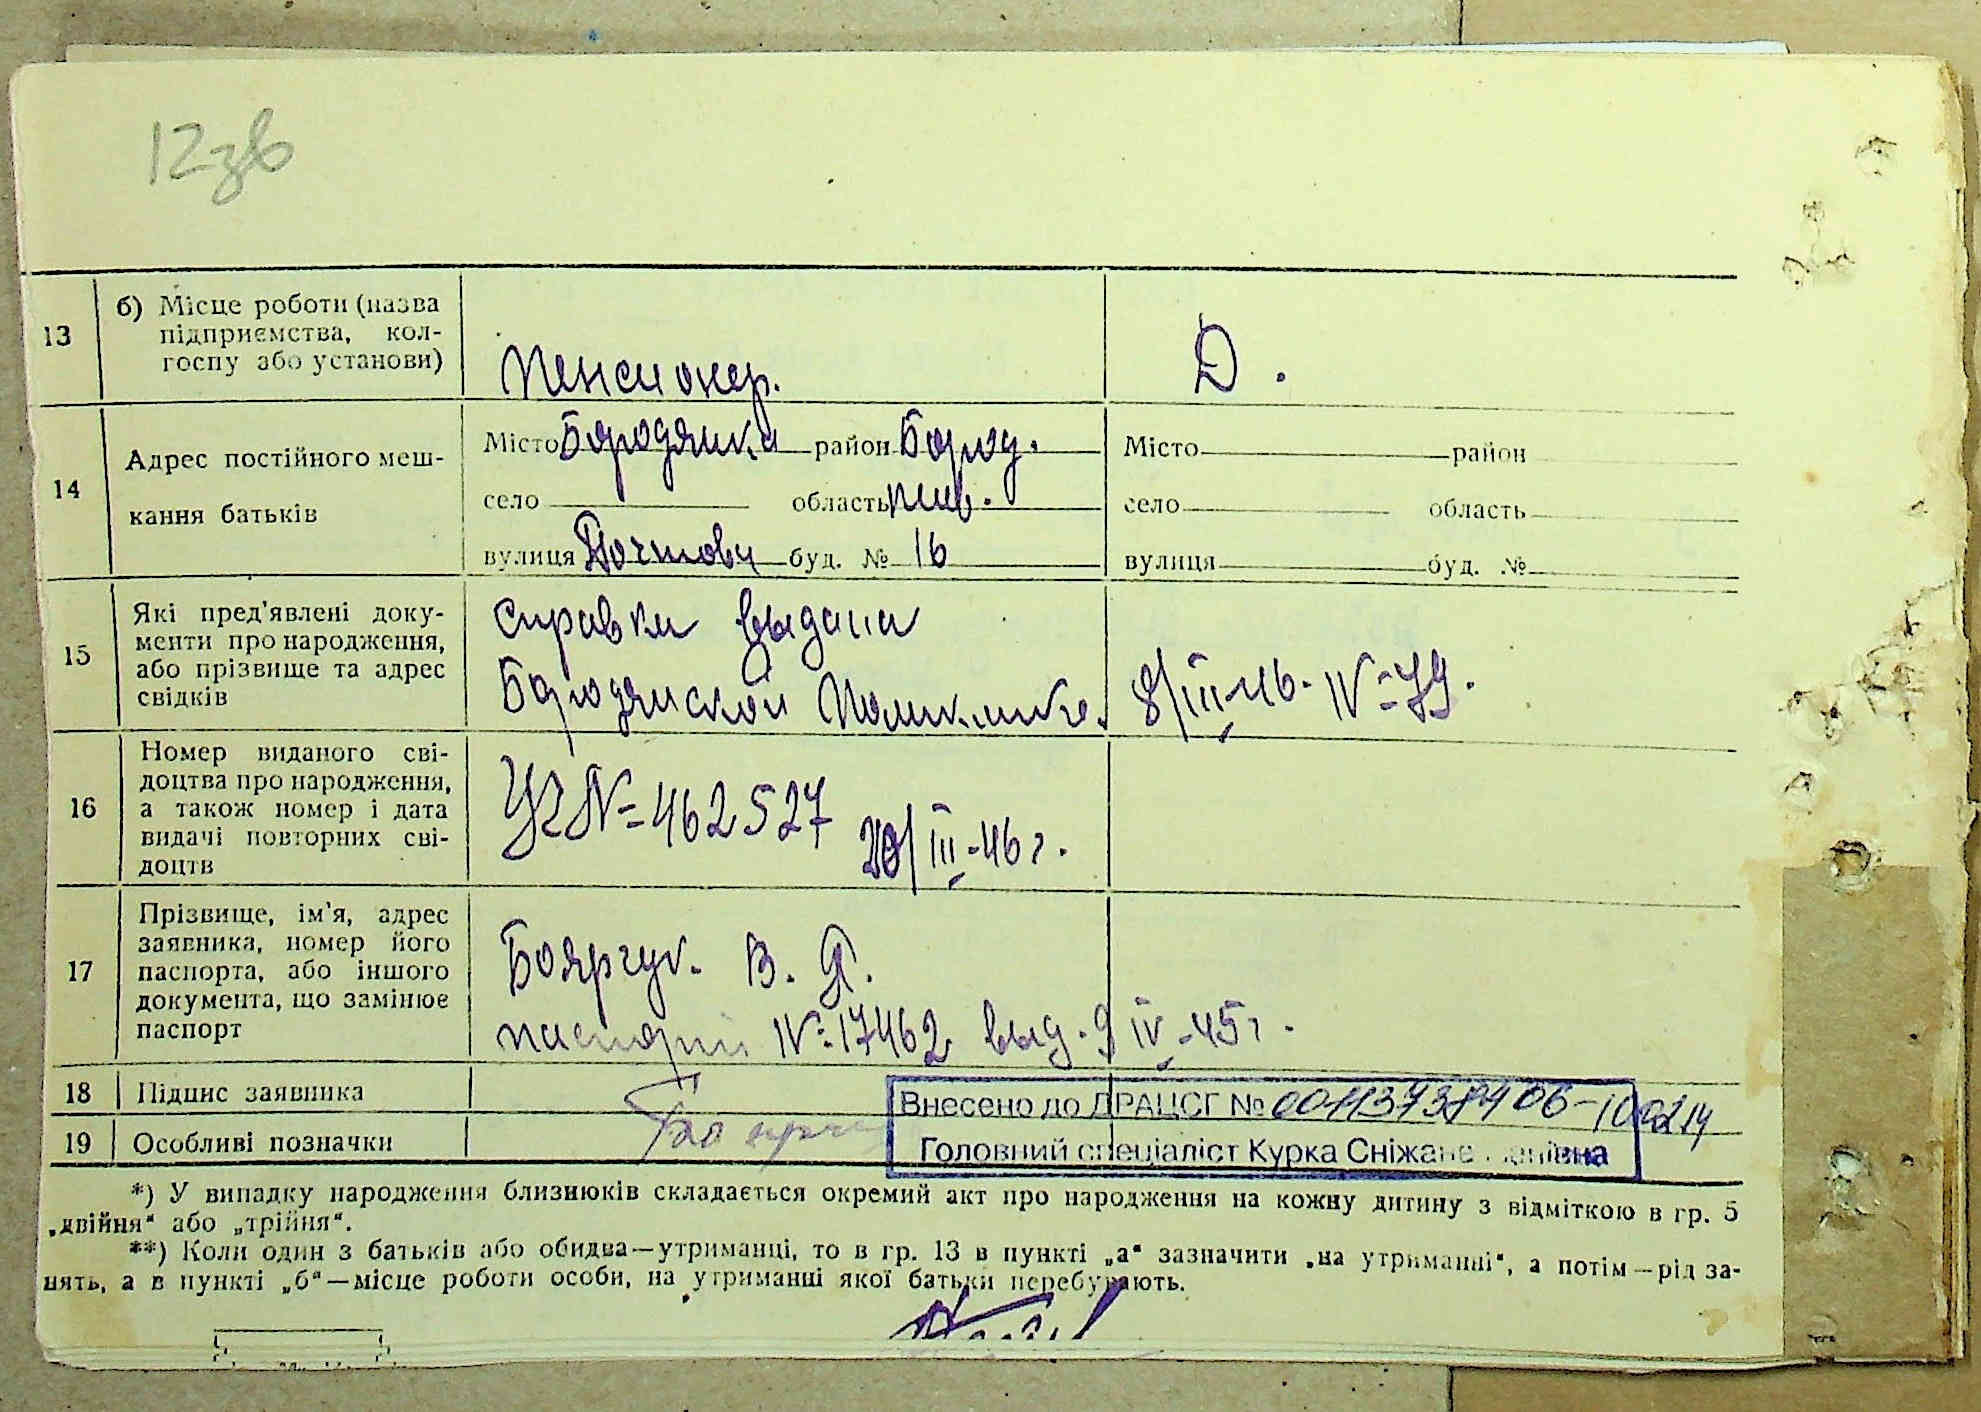 12зв
13 б) Місце роботи (назва
підприємства, кол-
госпу або установи)
Пенсионер.
Д.
14 Адрес постійного меш-
кання батьків
Місто Бородянка район Бород.
село область киев.
вулиця Почтова буд. № 16
Місто район
село область
вулиця буд. №
15 Які пред'явлені доку-
менти про народження,
або прізвище та адрес
свідків
справка выдана
Бородянской Поликлинке. 8/III-46. №79.
16 Номер виданого сві-
доцтва про народження,
а також номер і дата
видачі повторних сві-
доцтв
№-462527 20/III-46г.
17 Прізвище, ім'я, адрес
заявника, номер його
паспорта, або іншого
документа, що замінює
паспорт
Боярчук. В.
паспорт №17462 выд. 9 IV-45г.
18 Підпис заявника
19 Особливі позначки
Внесено до ДРАЦСГ №
Головний спеціаліст Курка Сніжана
*) У випадку народження близнюків складається окремий акт про народження на кожну дитину з відміткою в гр. 5
„двійня“ або „трійня“.
**) Коли один з батьків або обидва—утриманці, то в гр. 13 в пункті „а“ зазначити „на утриманні“, а потім—рід за-
нять, а в пункті „б“—місце роботи особи, на утриманні якої батьки перебувають.